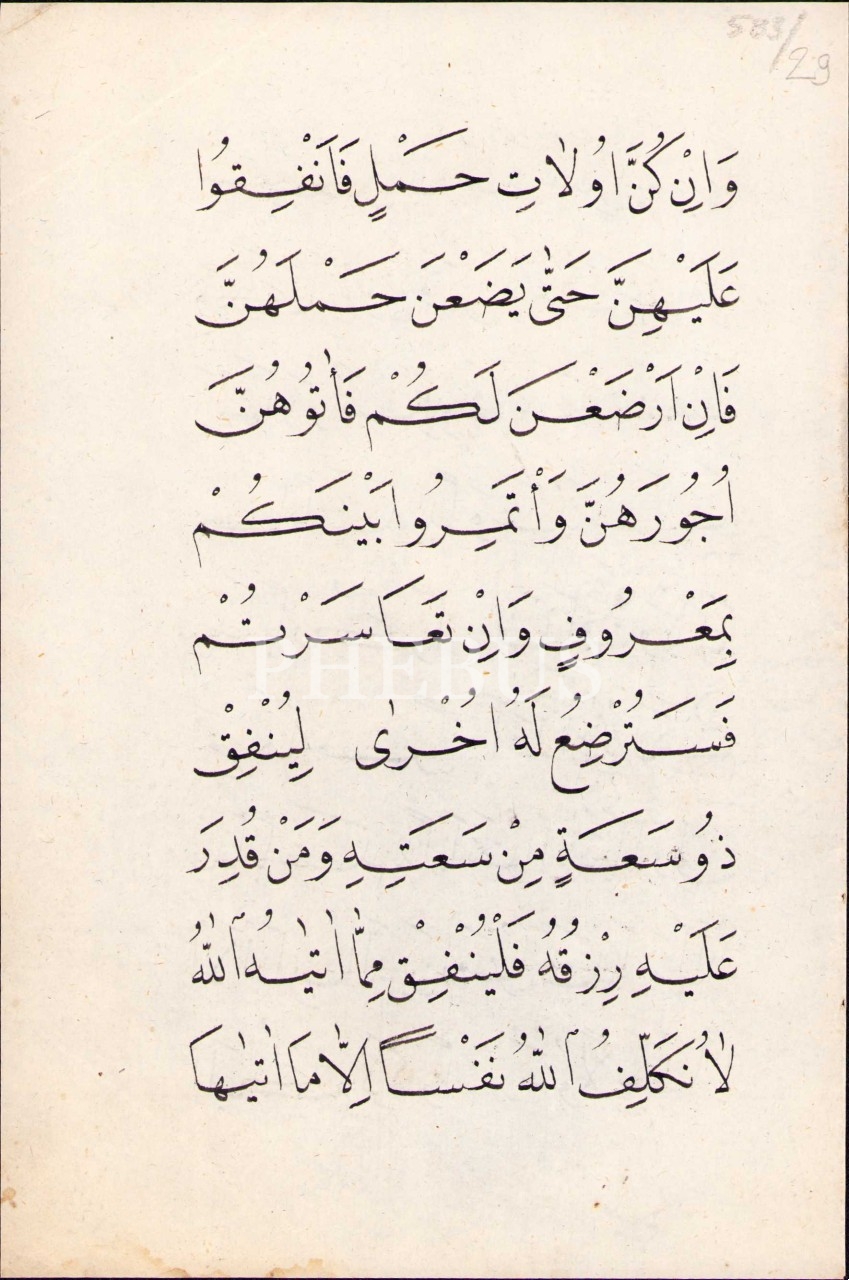 583/29
وَاِنْ كُنَّ اُولَاتِ حَمْلٍ فَاَنْفِقُوا
عَلَيْهِنَّ حَتّٰى يَضَعْنَ حَمْلَهُنَّ
فَاِنْ اَرْضَعْنَ لَكُمْ فَاٰتُوهُنَّ
اُجُورَهُنَّ وَأْتَمِرُوا بَيْنَكُمْ
بِمَعْرُوفٍ وَاِنْ تَعَاسَرْتُمْ
PHEBUS
فَسَتُرْضِعُ لَهُ اُخْرٰى لِيُنْفِقْ
ذُو سَعَةٍ مِنْ سَعَتِهِ وَمَنْ قُدِرَ
عَلَيْهِ رِزْقُهُ فَلْيُنْفِقْ مِمَّا اٰتٰيهُ اللّٰهُ
لَا يُكَلِّفُ اللّٰهُ نَفْساً اِلَّا مَا اٰتٰيهَا